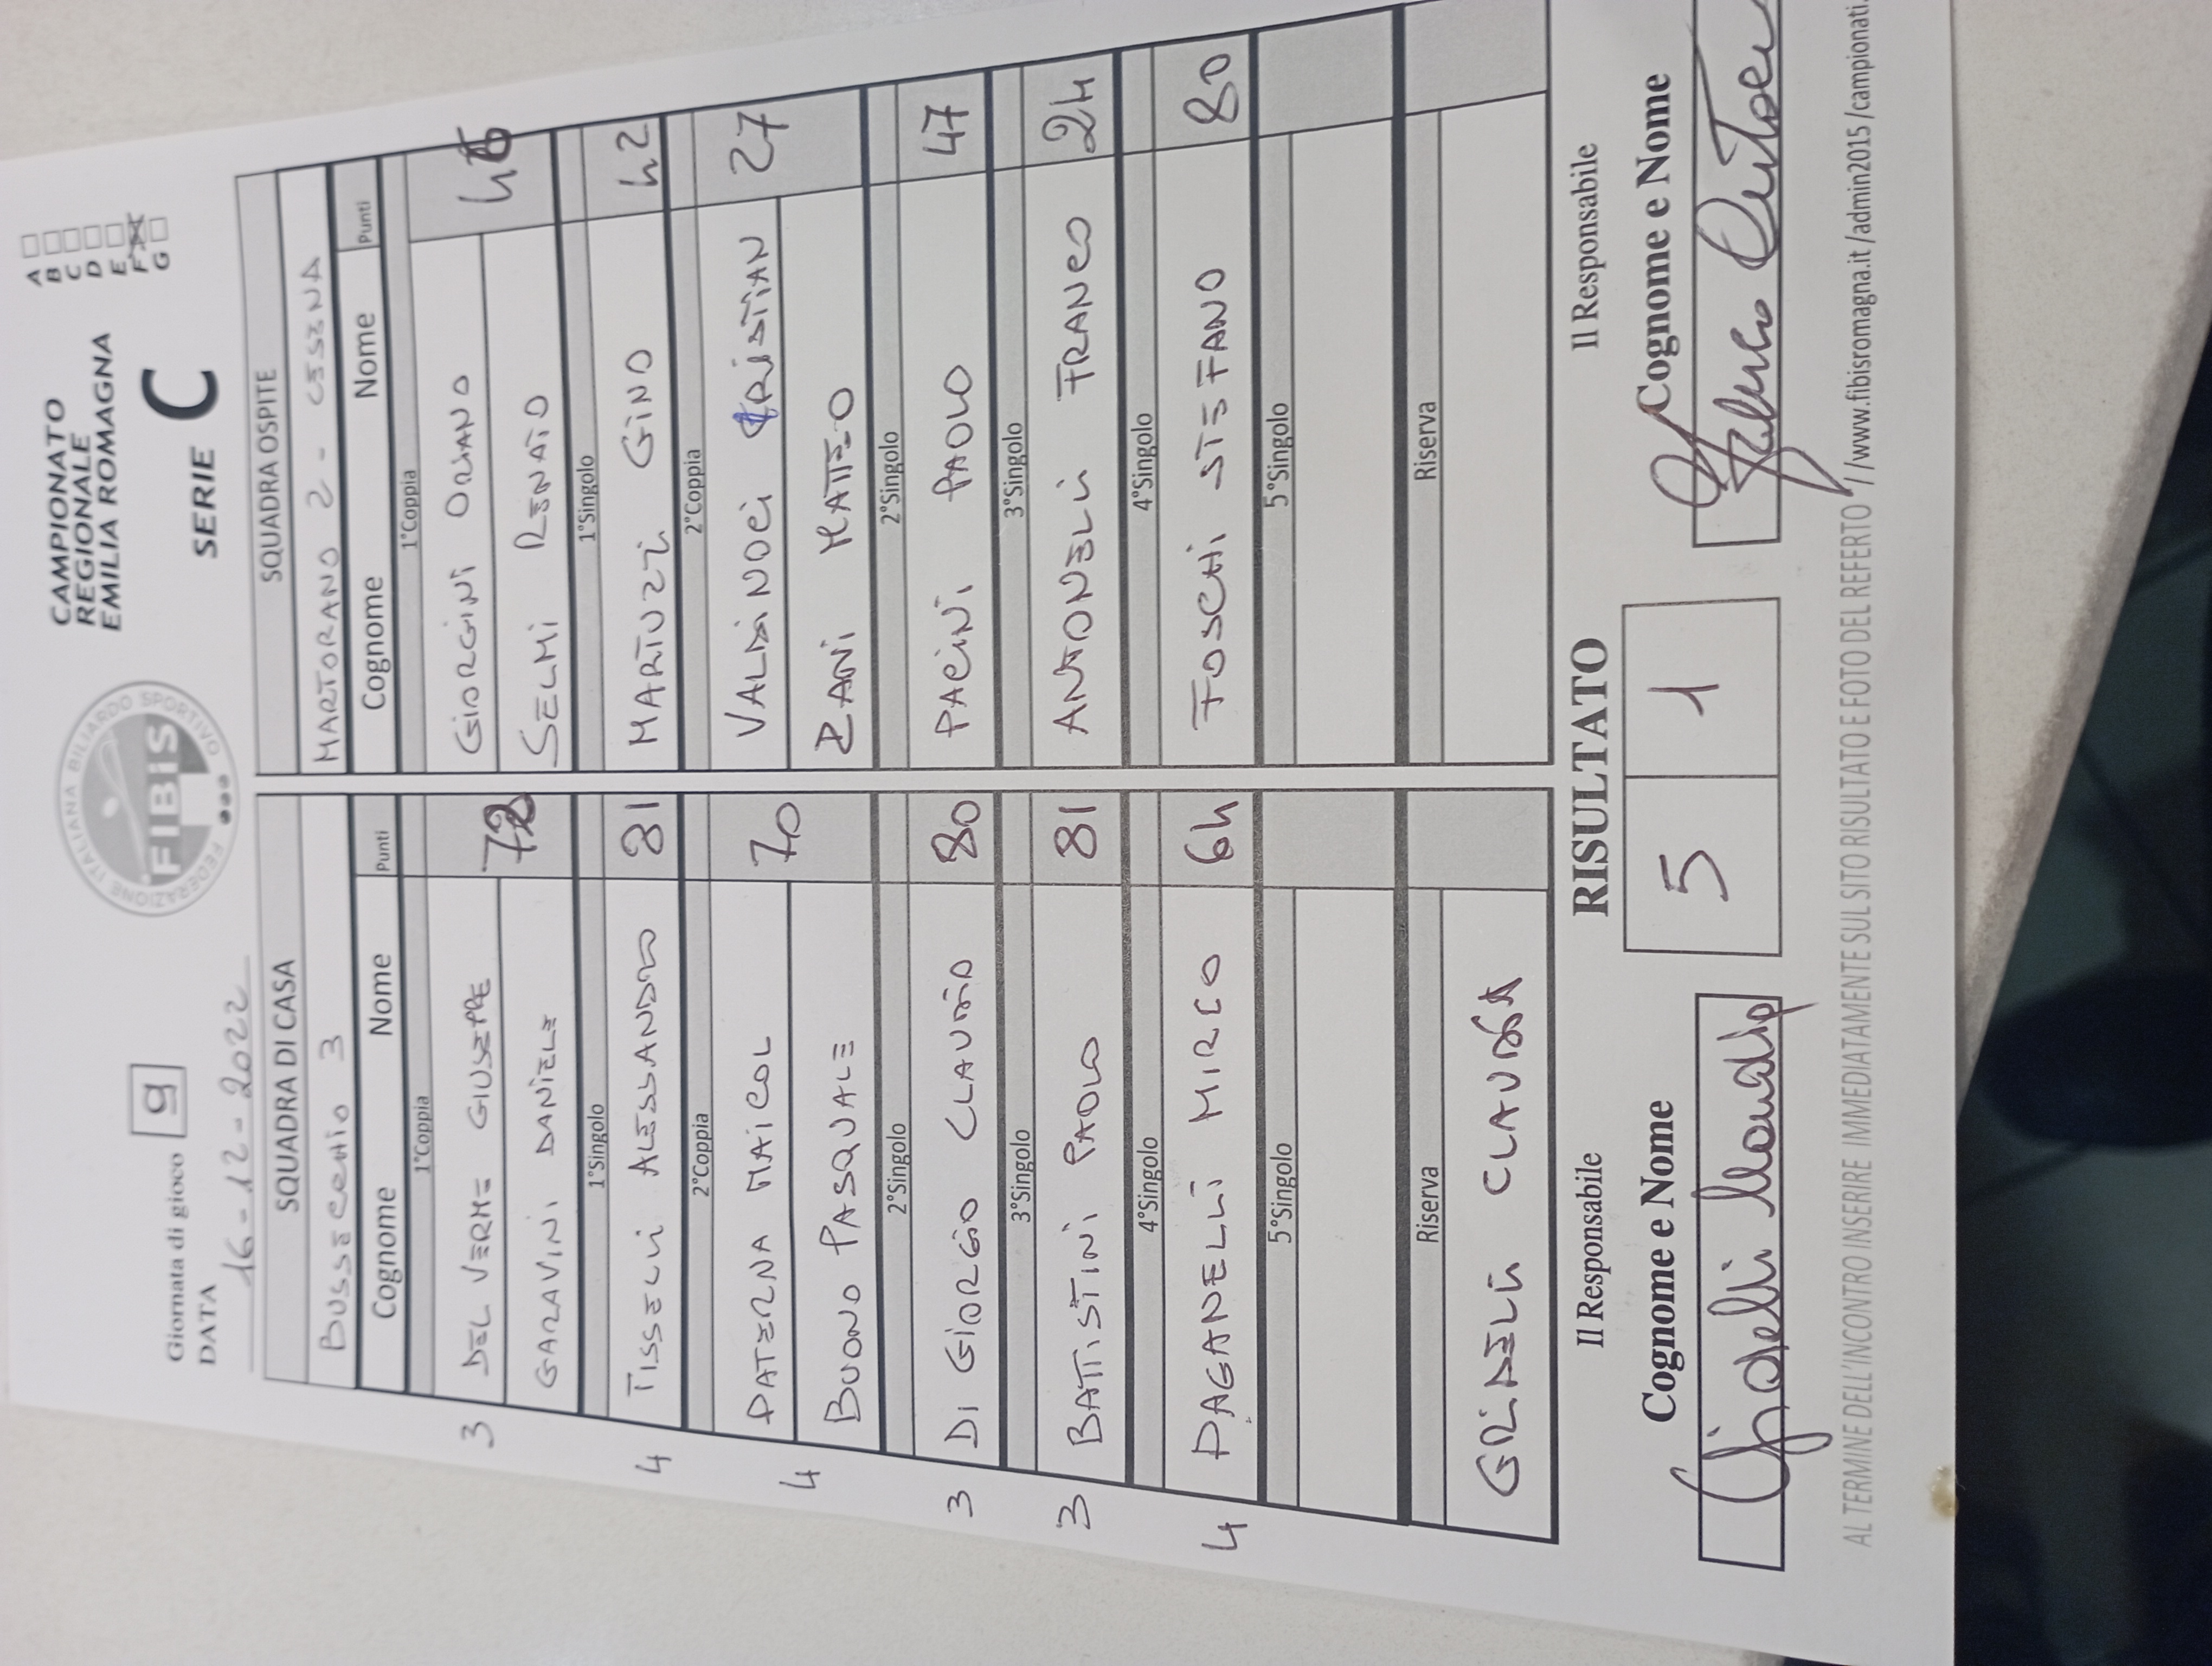 Giornata di gioco 9
DATA 16-12-2022
FEDERAZIONE ITALIANA BILIARDO SPORTIVO
FIBiS
CAMPIONATO
REGIONALE
EMILIA ROMAGNA
SERIE C
A
B
C
D
E
F X
G
SQUADRA DI CASA SQUADRA OSPITE
BUSSECCHIO 3 MARTORANO 2 - CESENA
Cognome Nome Punti Cognome Nome Punti
1°Coppia 1°Coppia
3 DEL VERME GIUSEPPE 72 GIORGINI ORIANO
GARAVINI DANIELE SELMI RENATO
1°Singolo 1°Singolo
4 TISSELLI ALESSANDRO 81 MARTUZZI GINO 42
2°Coppia 2°Coppia
4 PATERNA MAICOL 70 VALDINOCI CRISTIAN 27
BUONO PASQUALE ZANI MATTEO
2°Singolo 2°Singolo
3 DI GIORGIO CLAUDIO 80 PACINI PAOLO 47
3°Singolo 3°Singolo
3 BATTISTINI PAOLO 81 ANTONELLI FRANCO 24
4°Singolo 4°Singolo
4 PAGANELLI MIRCO 64 FOSCHI STEFANO 80
5°Singolo 5°Singolo
Riserva Riserva
GRIDELLI CLAUDIA
Il Responsabile RISULTATO Il Responsabile
Cognome e Nome 5 1 Cognome e Nome
AL TERMINE DELL'INCONTRO INSERIRE IMMEDIATAMENTE SUL SITO RISULTATO E FOTO DEL REFERTO //www.fibisromagna.it /admin2015 /campionati.